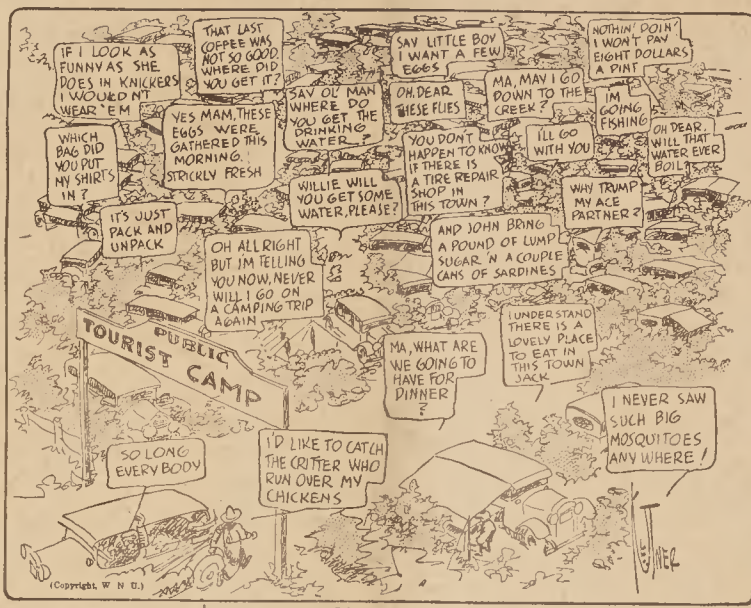 IF I LOOK AS
FUNNY AS SHE
DOES IN KNICKERS
I WOULDN'T
WEAR 'EM
THAT LAST
COFFEE WAS
NOT SO GOOD.
WHERE DID
YOU GET IT?
SAY LITTLE BOY
I WANT A FEW
EGGS
NOTHIN' DOIN'
I WON'T PAY
EIGHT DOLLARS
A PINT
YES MAM, THESE
EGGS WERE
GATHERED THIS
MORNING.
STRICKLY FRESH
SAY OL' MAN
WHERE DO
YOU GET THE
DRINKING
WATER?
OH, DEAR
THESE FLIES
MA, MAY I GO
DOWN TO THE
CREEK?
I'M
GOING
FISHING
WHICH
BAG DID
YOU PUT
MY SHIRTS
IN?
YOU DON'T
HAPPEN TO KNOW
IF THERE IS
A TIRE REPAIR
SHOP IN
THIS TOWN?
I'LL GO
WITH YOU
OH DEAR
WILL THAT
WATER EVER
BOIL
WILLIE WILL
YOU GET SOME
WATER, PLEASE?
WHY TRUMP
MY ACE
PARTNER?
IT'S JUST
PACK AND
UNPACK
OH ALL RIGHT
BUT I'M TELLING
YOU NOW, NEVER
WILL I GO ON
A CAMPING TRIP
AGAIN
AND JOHN BRING
A POUND OF LUMP
SUGAR 'N A COUPLE
CANS OF SARDINES
PUBLIC
TOURIST CAMP
MA, WHAT ARE
WE GOING TO
HAVE FOR
DINNER
?
I UNDERSTAND
THERE IS A
LOVELY PLACE
TO EAT IN
THIS TOWN
JACK
I NEVER SAW
SUCH BIG
MOSQUITOES
ANY WHERE!
SO LONG
EVERY BODY
I'D LIKE TO CATCH
THE CRITTER WHO
RUN OVER MY
CHICKENS
(Copyright, W N U.)